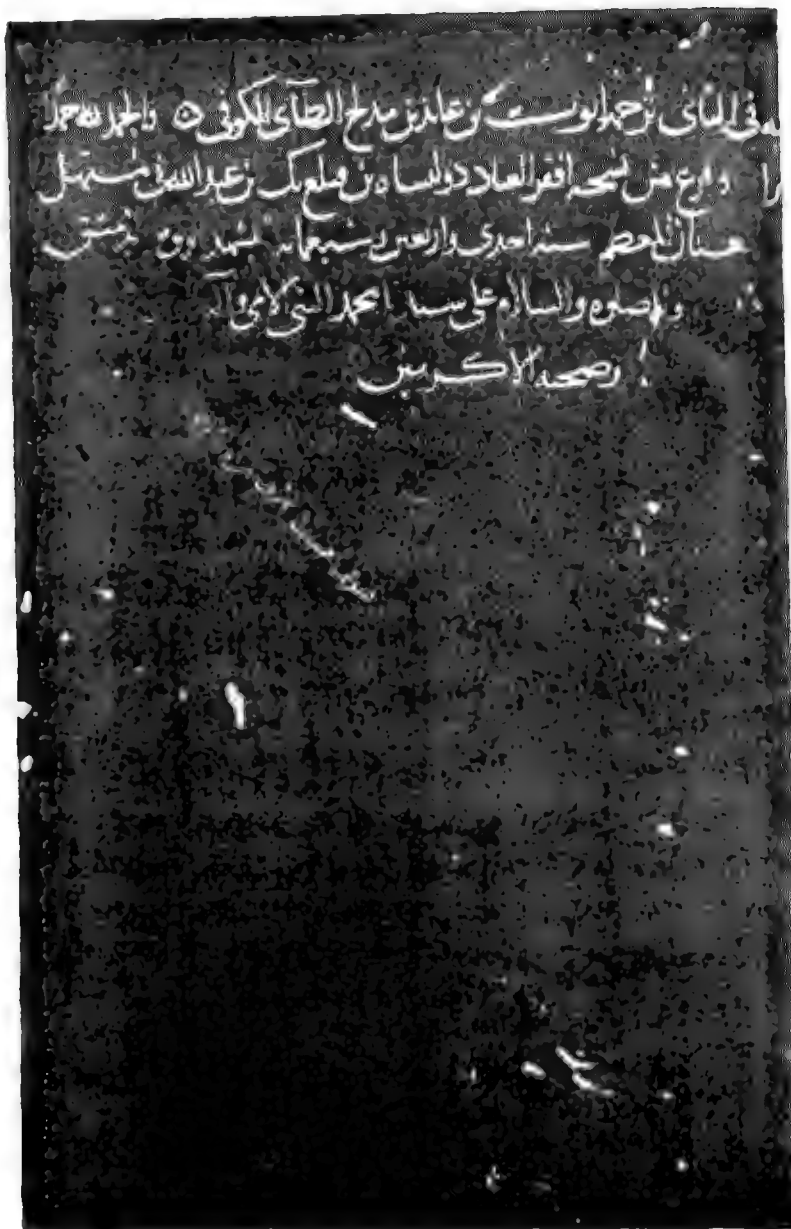 في الثاني ترجمة ايوب بن عائذ بن مدلج الطائي الكوفي ٥ والحمد لله حمدا
وفرغ من نسخه افقر العباد دولتشاه بن عبد الله في مستهل
شعبان المعظم سنة احدى واربعين وسبعمائة بدمشق
والصلوة والسلام على سيدنا محمد النبي الامي وآله
وصحبه الاكرمين